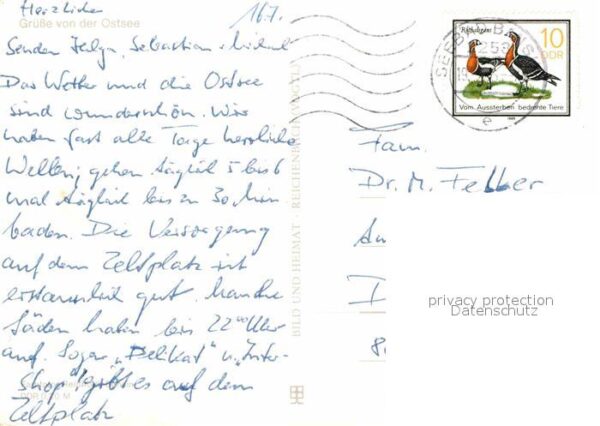 Herzliche 16.7.
Grüße von der Ostsee
Senden Helga, Sebastian +
Das Wetter und die Ostsee
sind wunderschön. Wir
haben fast alle Tage herrliche
Wellen, gehen täglich 5 bis 6
mal täglich bis zu 30 Min
baden. Die Versorgung
auf dem Zeltplatz ist
erstaunlich gut, manche
Läden haben bis 22 00 Uhr
auf. Sogar „Delikat" u. „Inter-
shop" gibt es auf dem
Zeltplatz
BILD UND HEIMAT REICHENBACH
DDR M
SEEBAD
Rothalsgans
10
DDR
Vom Aussterben bedrohte Tiere
1985
e
Fam.
Dr. M. Felber
privacy protection
Datenschutz